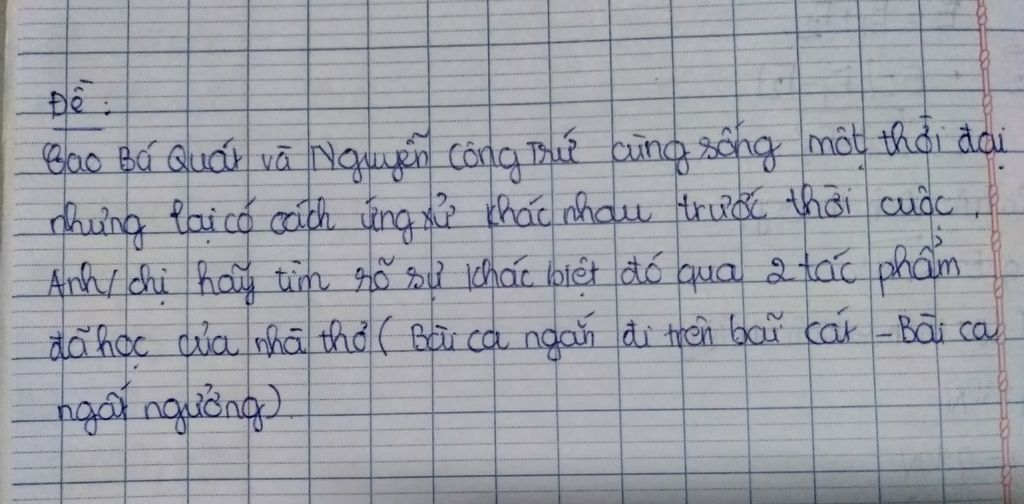 Đề:
Cao Bá Quát và Nguyễn Công Trứ cùng sống một thời đại
nhưng lại có cách ứng xử khác nhau trước thời cuộc.
Anh/chị hãy tìm rõ sự khác biệt đó qua 2 tác phẩm
đã học của nhà thơ (Bài ca ngắn đi trên bãi cát - Bài ca
ngất ngưởng)